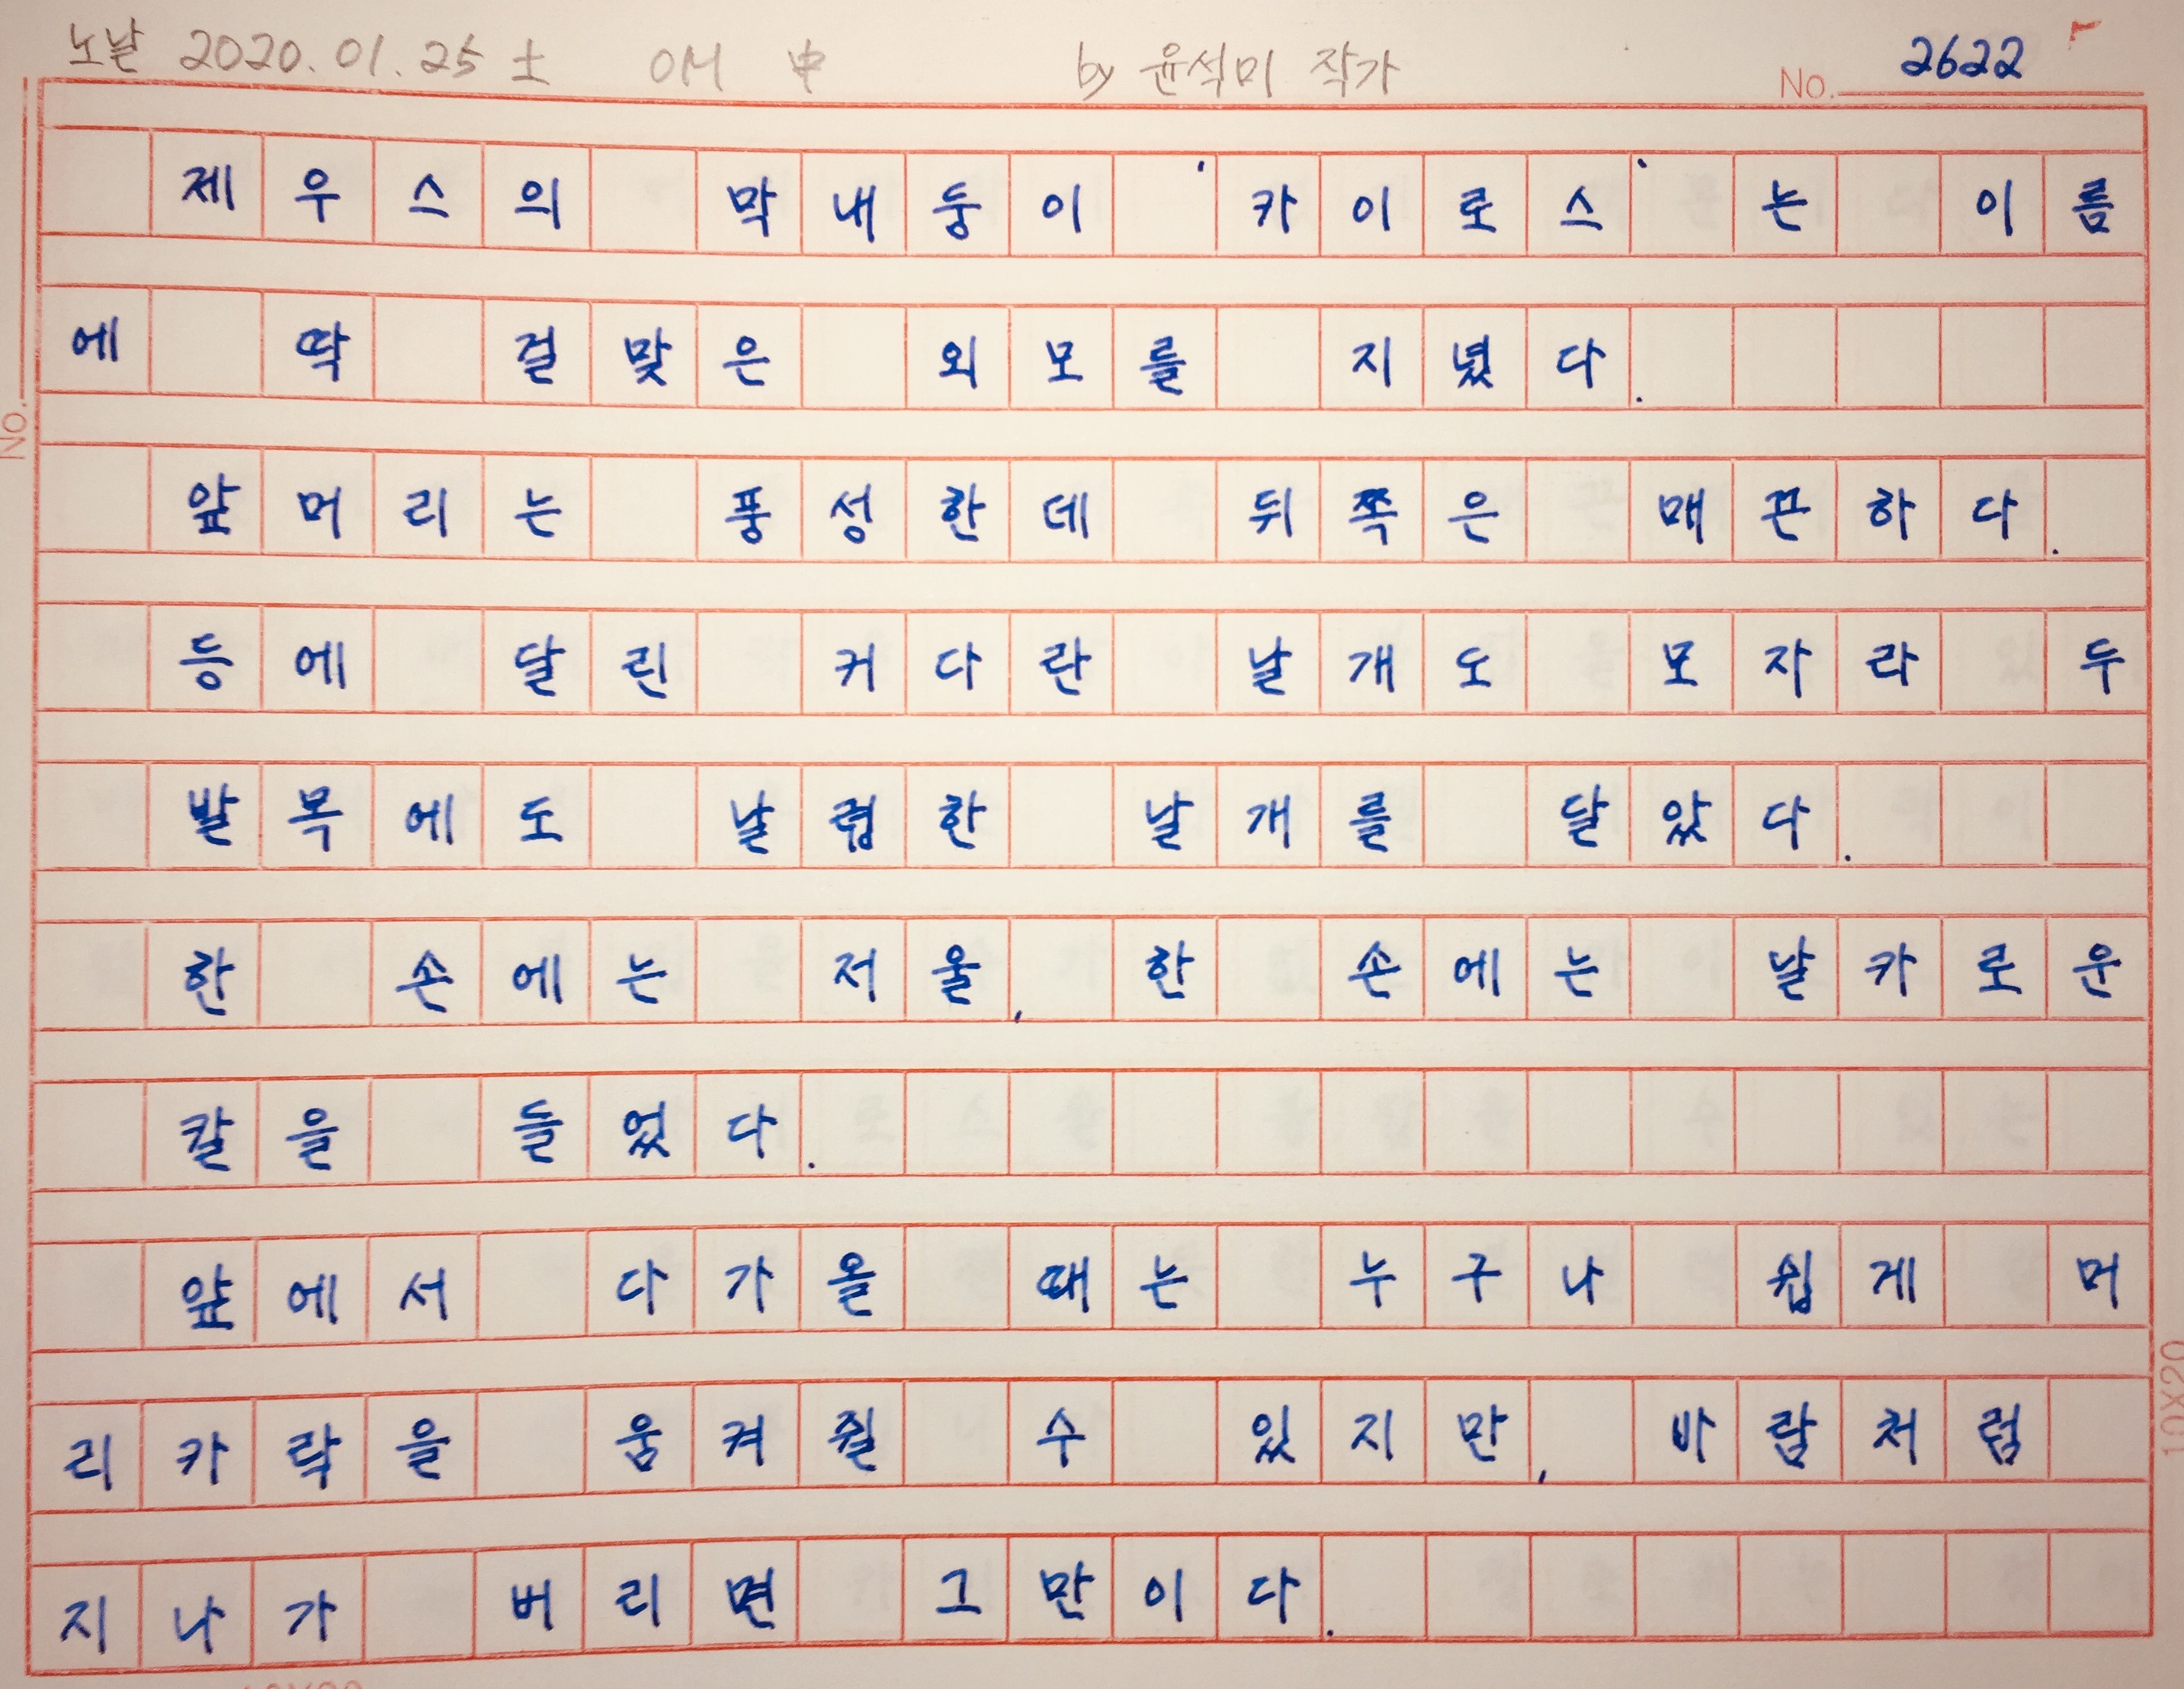 노날 2020.01.25 土 OM 中 by 윤석미 작가 No. 2622
제우스의 막내둥이 '카이로스'는 이름
에 딱 걸맞은 외모를 지녔다.
앞머리는 풍성한데 뒤쪽은 매끈하다.
등에 달린 커다란 날개도 모자라 두
발목에도 날렵한 날개를 달았다.
한 손에는 저울, 한 손에는 날카로운
칼을 들었다.
앞에서 다가올 때는 누구나 쉽게 머
리카락을 움켜쥘 수 있지만, 바람처럼
지나가 버리면 그만이다.
No.
10X20